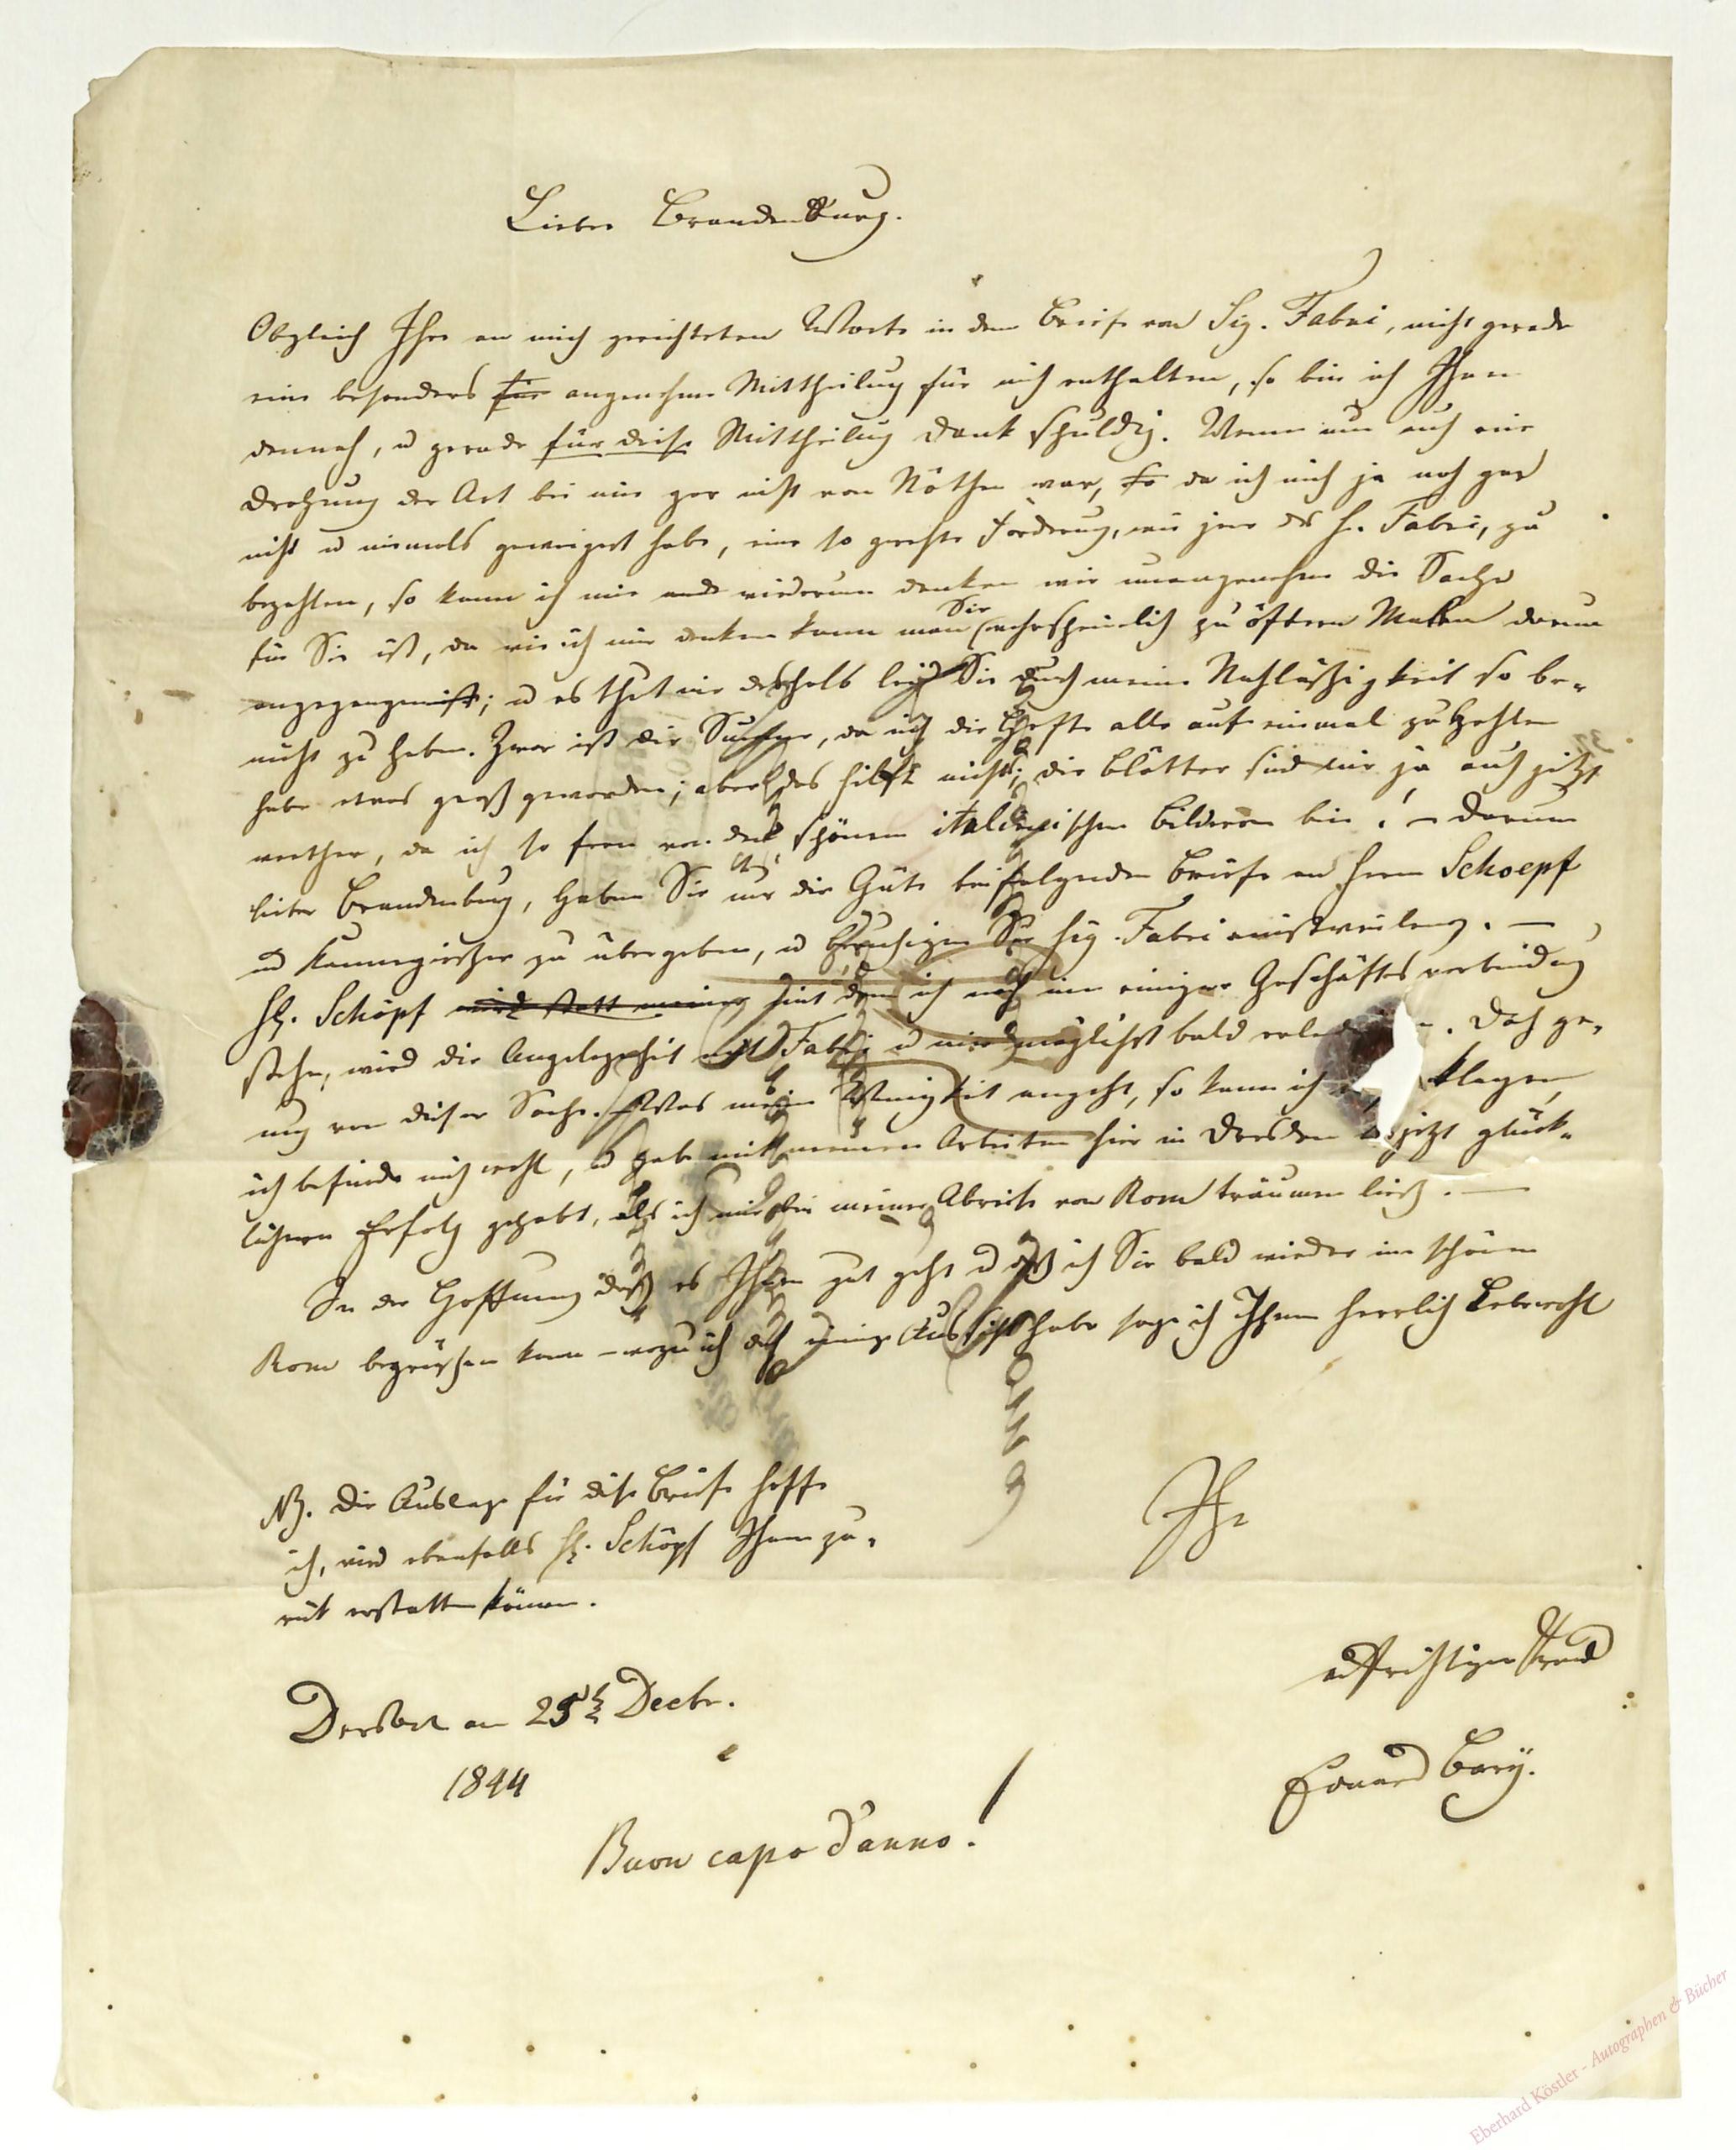 Lieber Brandenburg.
Obgleich Ihre an mich gerichteten Worte in dem Briefe von Sig. Fabri, nicht gerade
eine besonders für angenehme Mittheilung für mich enthalten, so bin ich Ihnen
dennoch, u gerade für diese Mittheilung Dank schuldig. Wenn nun auch eine
Drohung der Art bei mir gar nicht von Nöthen war, so da ich mich ja noch gar
nicht u niemals geweigert habe, eine so gerechte Forderung, wie jene des H. Fabri, zu
bezahlen, so kann ich mir wiederum denken wie unangenehm die Sache
für Sie ist, da wie ich mir denken kann man Sie wahrscheinlich zu öftern Malen darum
angegangen ist; u es thut mir deshalb leid Sie durch meine Nachlässigkeit so be-
müht zu haben. Zwar ist die Summe, da ich die Hefte alle auf einmal zu bezahlen
habe etwas groß geworden; aber das hilft nichts; die Blätter sind mir ja auch jetzt
werther, da ich so fern von den schönen italienischen Bildern bin! – Darum
lieber Brandenburg, haben Sie nur die Güte beifolgenden Briefe an Herrn Schoepf
und Kannegiesser zu übergeben, u beruhigen Sie Sig. Fabri einstweilen. –
H. Schöpf wird statt meiner mit dem ich noch in einiger Geschäftsverbindung
stehe, wird die Angelegenheit mit Fabri u mir möglichst bald . Doch ge-
nug von dieser Sache. Was meine Wenigkeit angeht, so kann ich klagen,
ich befinde mich wohl, u habe mit meinen Arbeiten hier in Dresden bis jetzt glück-
lichern Erfolg gehabt, als ich mir bei meiner Abreise von Rom träumen ließ. —
In der Hoffnung daß es Ihnen gut geht u daß ich Sie bald wieder im schönen
Rom begrüßen kann – wozu ich auch einige Aussicht habe sage ich Ihnen herzlich Lebewohl
NB. Die Auslage für diese Briefe hoffe
ich, wird ebenfalls H. Schöpf Ihnen zu-
rück erstatten können.
Ihr
aufrichtiger Freund
Eduard Bary.
Dresden am 25t Decbr.
1844
Buon capo d'anno!
Eberhard Köstler - Autographen & Bücher